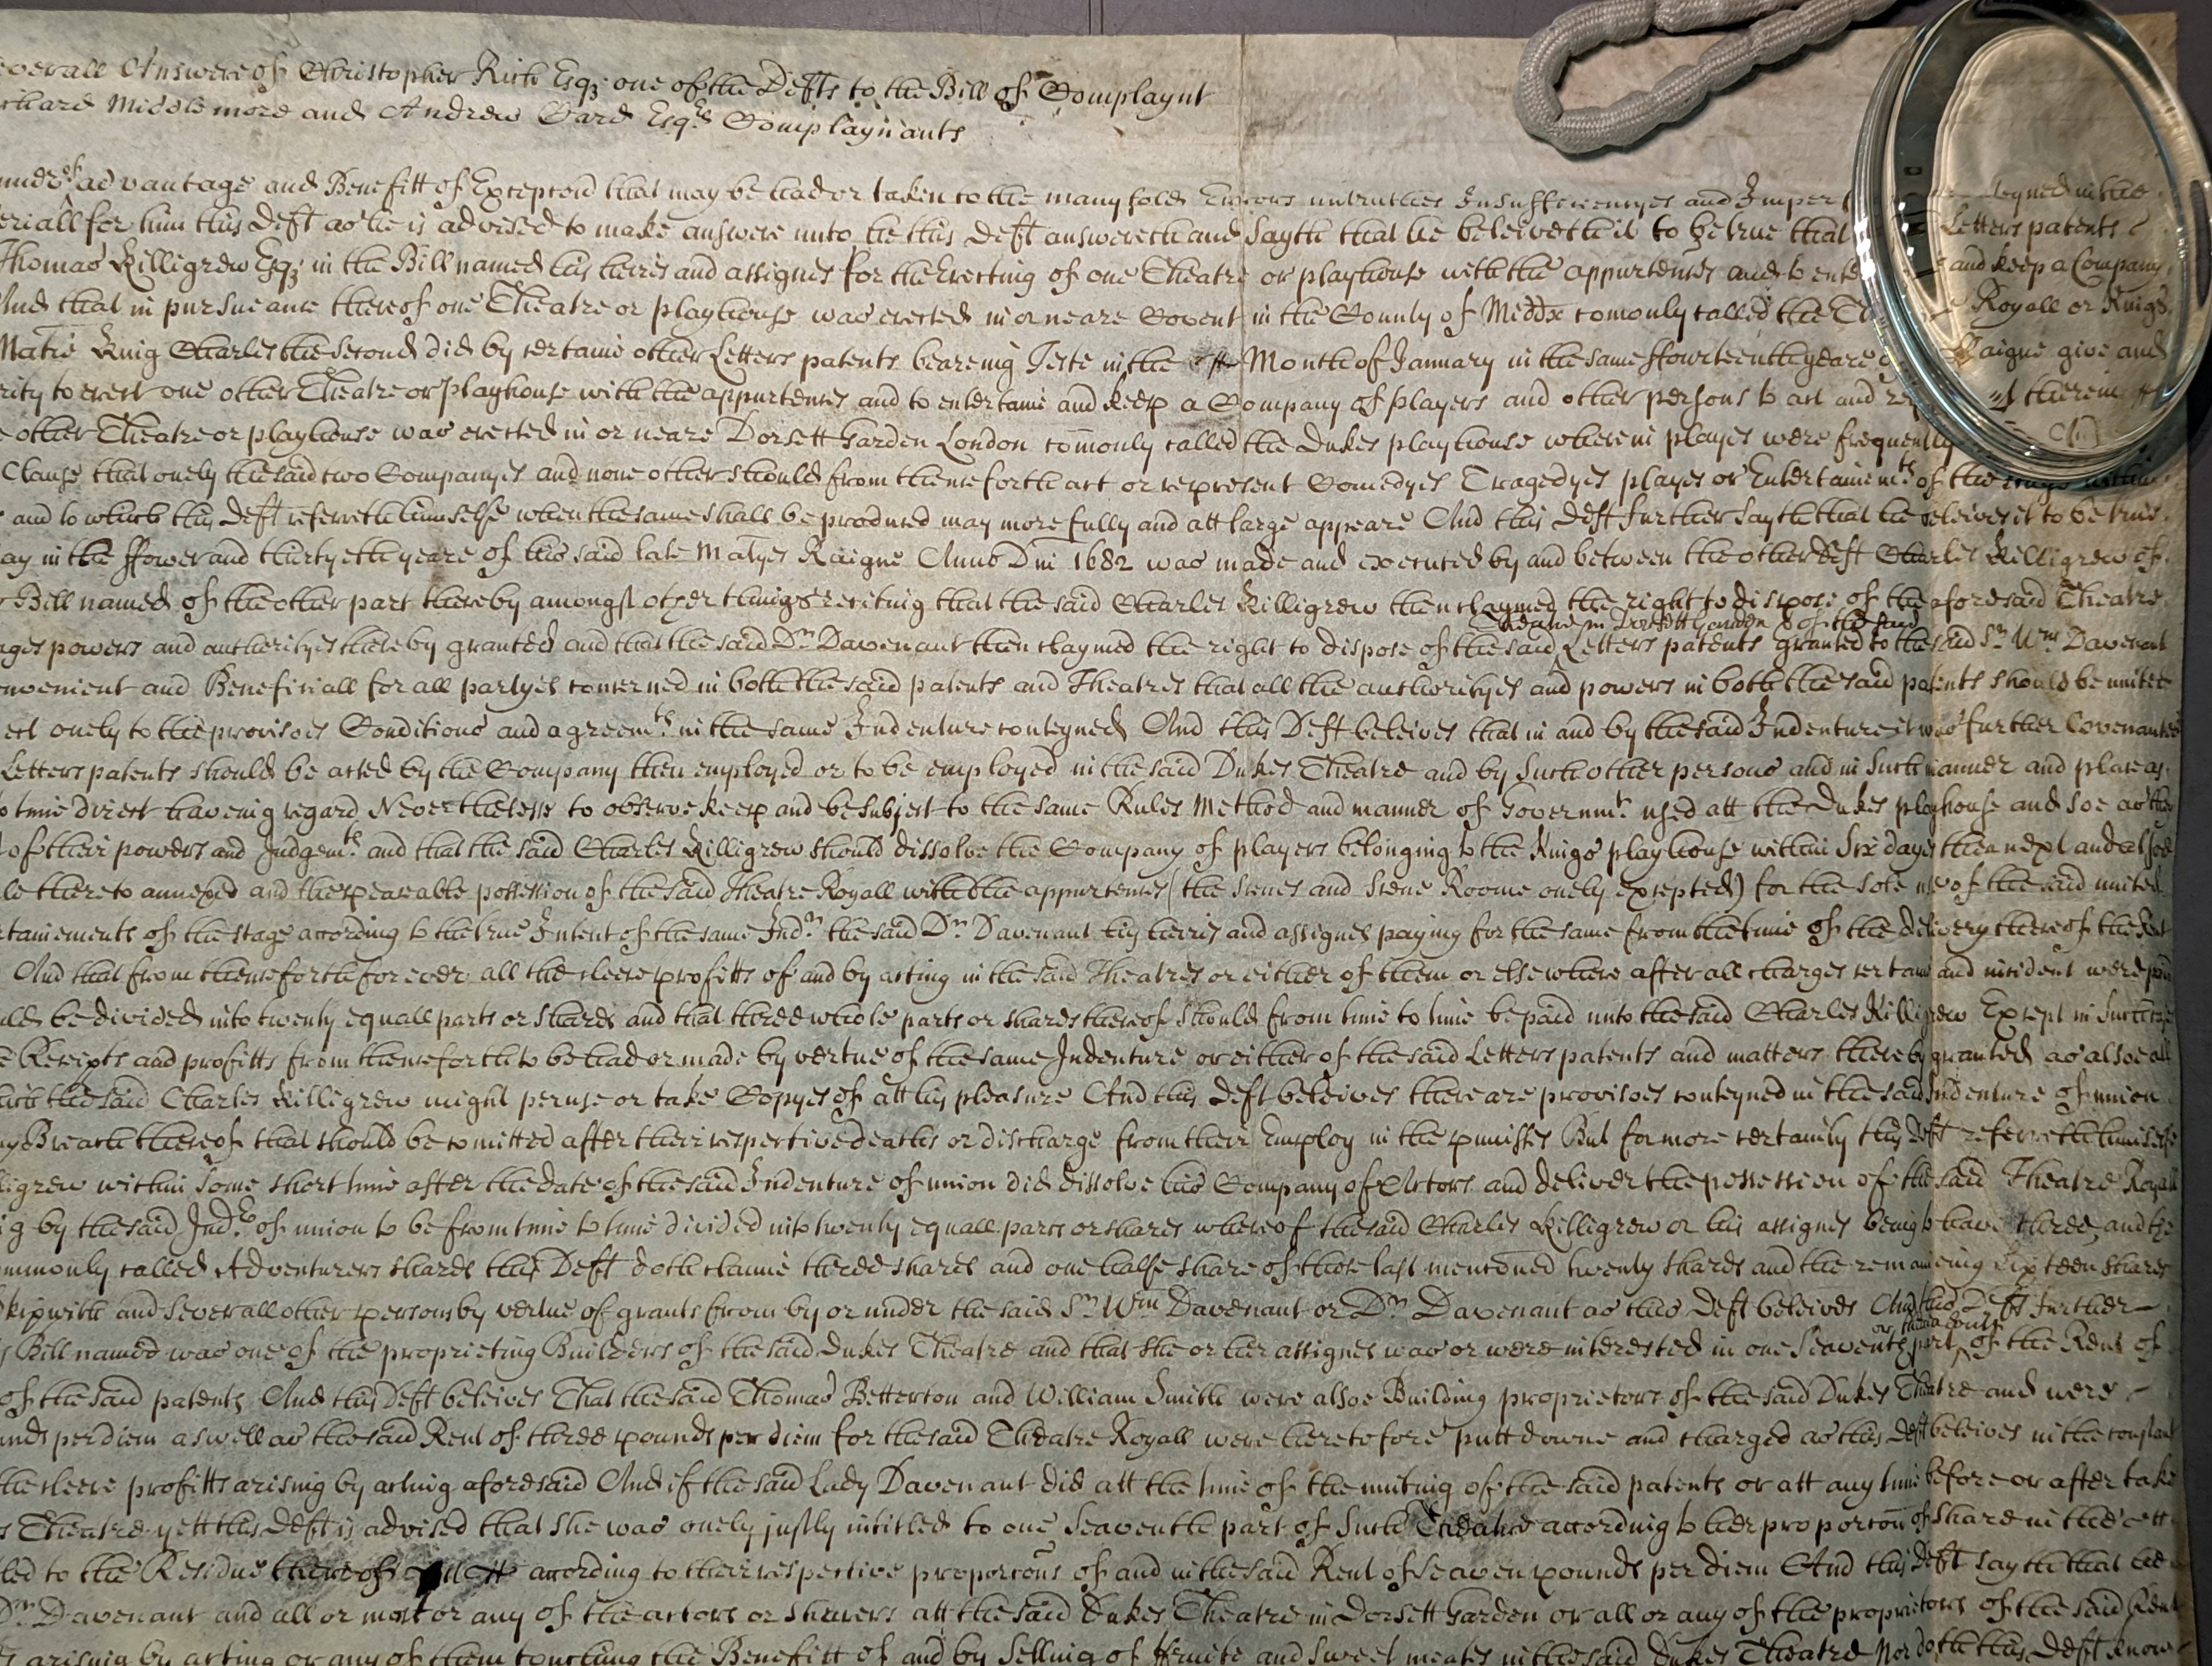 everall Answere of Christopher Rich Esqr one of the Defts to the Bill of Complaynt
chard Middlemore and Andrew Card Esqrs Complaynants
advantage and Benefitt of Excepcon that may be had or taken to the manyfold Errors untruthes Insufficiencyes and Imper teyned in the
eriall for him this Deft as he is advised to make answere unto he this Deft answereth and Sayth that he beleiveth it to be true that Letters patents
Thomas Killigrew Esqr in the Bill named his heires and assignes for the Erecting of one Theatre or playhouse with the appurtences and to ente and keep a Company
And that in pursueance thereof one Theatre or playhouse was erected in or neare Covent in the County of Middx comonly called the Th Royall or Kings
Matie King Charles the Second did by certaine other Letters patents beareing Teste in the Month of January in the same ffowerteenth yeare o Raigne give and
rity to erect one other Theatre or playhouse with the appurtences and to entertaine and keep a Company of players and other persons to act and rep therein
e other Theatre or playhouse was erected in or neare Dorsett Garden London comonly called the Dukes playhouse wherein playes were frequently
Clause that onely the said two Companyes and none other should from thenceforth act or represent Comedyes Tragedyes playes or Entertainemts of the stage within
and to which this Deft referreth himselfe when the same shall be produced may more fully and att large appeare And this Deft further Sayth that he beleives it to be true
ay in the ffower and thirtyeth yeare of his said late Matyes Raigne Anno Dni 1682 was made and executed by and between the other Deft Charles Killigrew of
Bill named of the other part thereby amongst other things reciting that the said Charles Killigrew then claymed the right to dispose of the aforesaid Theatre
Theatre in Dorsett Garden & of the said
ages powers and authorityes thereby granted and that the said Dr Davenant then claymed the right to dispose of the said Letters patents granted to the said Sr Wm Davenant
nvenient and Beneficiall for all partyes concerned in both the said patents and Theatres that all the authorityes and powers in both the said patents should be united
ect onely to the provisoes Conditions and agreemts in the same Indenture conteyned And this Deft beleives that in and by the said Indenture it was further Covenanted
Letters patents should be acted by the Company then employed or to be employed in the said Dukes Theatre and by such other persons and in such manner and place as
o time direct haveing regard Neverthelesse to observe keep and be subject to the same Rules Method and manner of Governmt used att the Dukes playhouse and soe as they
of their powers and Judgemts and that the said Charles Killigrew should dissolve the Company of players belonging to the Kings playhouse within Six dayes then next and alsoe
le thereto annexed and the peaceable possession of the said Theatre Royall with the appurtences (the Scenes and Scene Roome onely excepted) for the sole use of the said united
rtainements of the stage according to the true Intent of the same Indre the said Dr Davenant his heires and assignes paying for the same from the time of the delivery thereof the Rent
And that from thenceforth for ever all the cleere profitts of and by acting in the said Theatres or either of them or elsewhere after all charges certaine and incident were paid
uld be divided into twenty equall parts or shares and that three whole parts or shares thereof should from time to time be paid unto the said Charles Killigrew Except in such case
e Receipts and profitts from thenceforth to be had or made by vertue of the same Indenture or either of the said Letters patents and matters thereby granted as alsoe all
which the said Charles Killigrew might peruse or take Copyes of att his pleasure And this Deft beleives there are provisoes conteyned in the said Indenture of union
ny Breach thereof that should be comitted after their respective deaths or discharge from their Employ in the pmisses But for more certainty this Deft referreth himselfe
ligrew within some short time after the date of the said Indenture of union did dissolve his Company of Actors and deliver the possession of the said Theatre Royall
g by the said Indre of union to be from time to time divided into twenty equall parts or shares whereof the said Charles Killigrew or his assignes being to have three and the
ommonly called Adventurers shares this Deft doth claime three shares and one halfe share of those last mentioned twenty shares and the remaineing Sixteen shares
kipwith and severall other persons by vertue of grants from by or under the said Sr Wm Davenant or Dr Davenant as this Deft beleives And this Deft further
or thereabouts
Bill named was one of the proprieting Builders of the said Dukes Theatre and that she or her assignes was or were interested in one Seaventh part of the Rent of
of the said patents And this Deft beleives That the said Thomas Betterton and William Smith were alsoe Building proprietors of the said Dukes Theatre and were
unds per diem as well as the said Rent of three pounds per diem for the said Theatre Royall were heretofore putt downe and charged as this Deft beleives in the constant
the cleere profitts arising by acting aforesaid And if the said Lady Davenant did att the time of the uniting of the said patents or att any time before or after take
s Theatre yett this Deft is advised that she was onely justly intitled to one Seaventh part of such Theatre according to her proporcon of share in the
led to the Residue thereof according to their respective proporcons of and in the said Rent of seaven pounds per diem And this Deft sayth that he
Dr Davenant and all or most or any of the actors or sharers att the said Dukes Theatre in Dorsett Garden or all or any of the proprietors of the said Rent
arising by acting or any of them touching the Benefitt of and by Selling of ffruite and sweet meates in the said Dukes Theatre Nor doth this Deft know